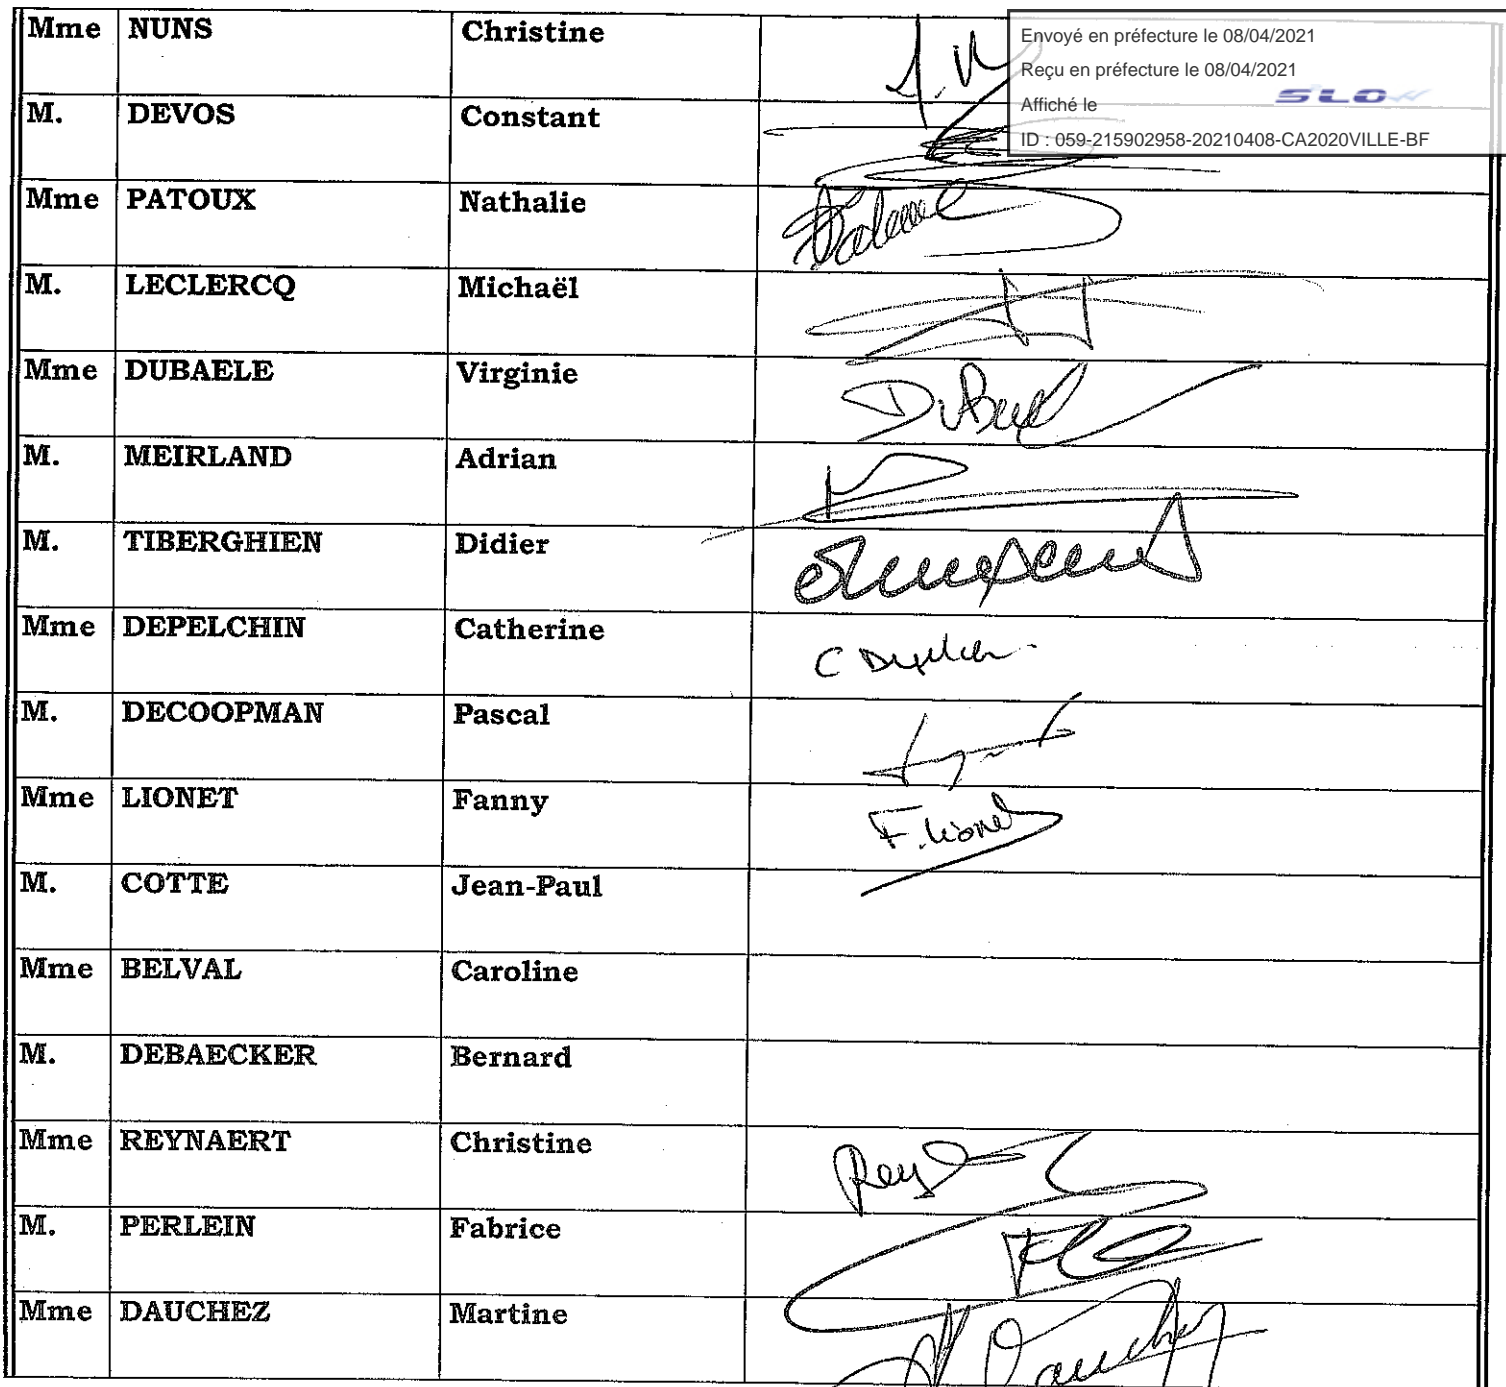 Mme NUNS Christine
Envoyé en préfecture le 08/04/2021
Reçu en préfecture le 08/04/2021
Affiché le SLOW
ID : 059-215902958-20210408-CA2020VILLE-BF
M. DEVOS Constant
Mme PATOUX Nathalie
M. LECLERCQ Michaël
Mme DUBAELE Virginie
M. MEIRLAND Adrian
M. TIBERGHIEN Didier
Mme DEPELCHIN Catherine
M. DECOOPMAN Pascal
Mme LIONET Fanny F. Lionet
M. COTTE Jean-Paul
Mme BELVAL Caroline
M. DEBAECKER Bernard
Mme REYNAERT Christine
M. PERLEIN Fabrice
Mme DAUCHEZ Martine